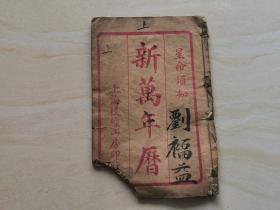 上
星命須知
劉福益
新萬年曆
上海
書局印
上